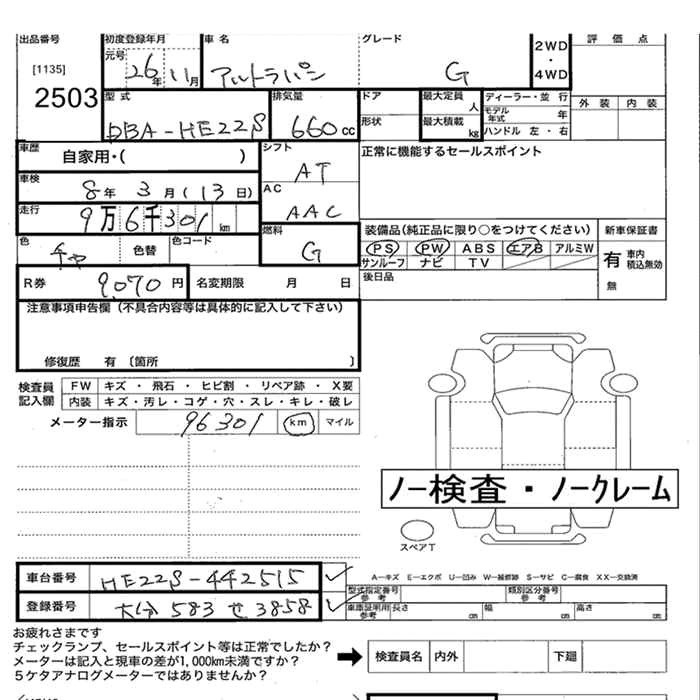 出品番号 初度登録年月 車名 グレード 2WD・4WD 評価点
[1135] 元号 26年 11月 アルトラパン G
2503 型式 排気量 ドア 最大定員 人 ディーラー・並行 外装 内装
DBA-HE22S 660cc 形状 最大積載 kg モデル年式 年
ハンドル 左・右
車歴 自家用・( ) シフト AT 正常に機能するセールスポイント
車検 8年 3月 (13日) AC AAC
走行 9万6千301km 燃料 G 装備品(純正品に限り○をつけてください) 新車保証書
色 チャ 色替 色コード PS PW ABS エアB アルミW 有 車内 積込無効
サンルーフ ナビ TV 無
R券 9,070円 名変期限 月 日 後日品
注意事項申告欄 (不具合内容等は具体的に記入して下さい)
修復歴 有 〔箇所 〕
検査員記入欄 FW キズ・飛石・ヒビ割・リペア跡・X要
内装 キズ・汚レ・コゲ・穴・スレ・キレ・破レ
メーター指示 96301 km マイル
ノー検査・ノークレーム
スペアT
車台番号 HE22S-442515
A-キズ E-エクボ U-凹み W-補修跡 S-サビ C-腐食 XX-交換済
型式指定番号 参考 類別区分番号 参考
登録番号 大分 583 せ 3858 車庫証明用 参考 長さ cm 幅 cm 高さ cm
お疲れさまです
チェックランプ、セールスポイント等は正常でしたか?
メーターは記入と現車の差が1,000km未満ですか?
5ケタアナログメーターではありませんか?
検査員名 内外 下廻